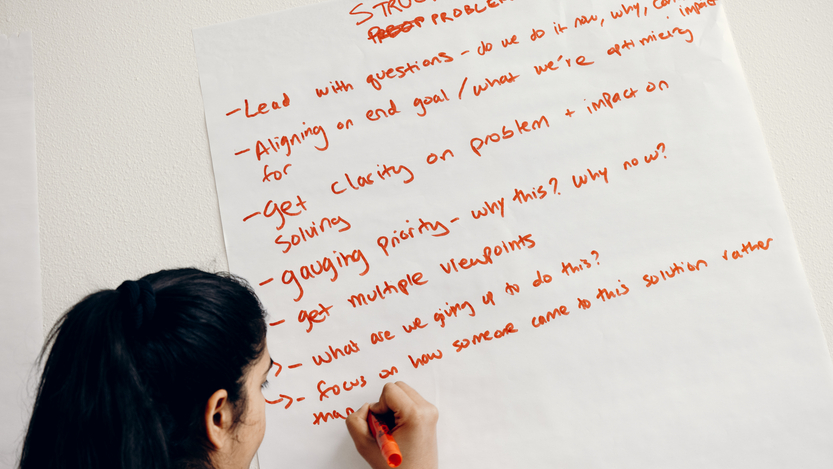 PROBLEM
- Lead with questions - do we do it now, why,
- Aligning on end goal / what we're optimizing
for
- get clarity on problem + impact on
solving
- gauging priority - why this? why now?
- get multiple viewpoints
- what are we giving up to do this?
- focus on how someone came to this solution rather
than